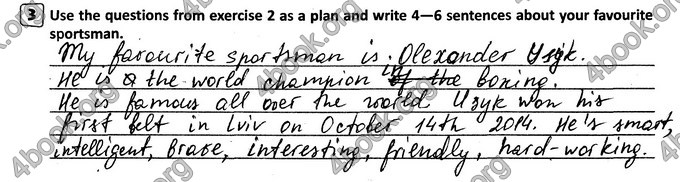 3 Use the questions from exercise 2 as a plan and write 4—6 sentences about your favourite
sportsman.
My favourite sportsman is Olexander Usyk.
He is a the world champion in of the boxing.
He is famous all over the world. Usyk won his
first belt in Lviv on October 14th 2014. He's smart,
intelligent, brave, interesting, friendly, hard-working.
4book.org